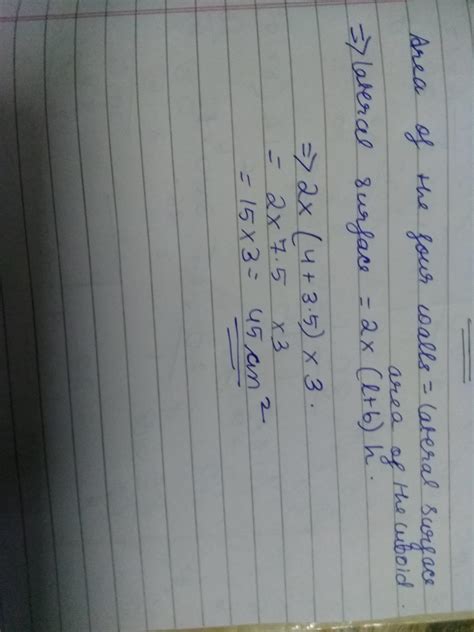 Area of the four walls = lateral surface
area of the cuboid.
=> lateral surface = 2x (l+b) h.
=> 2x (4+3.5) x 3.
= 2x 7.5 x3
= 15 x 3 = 45 cm²